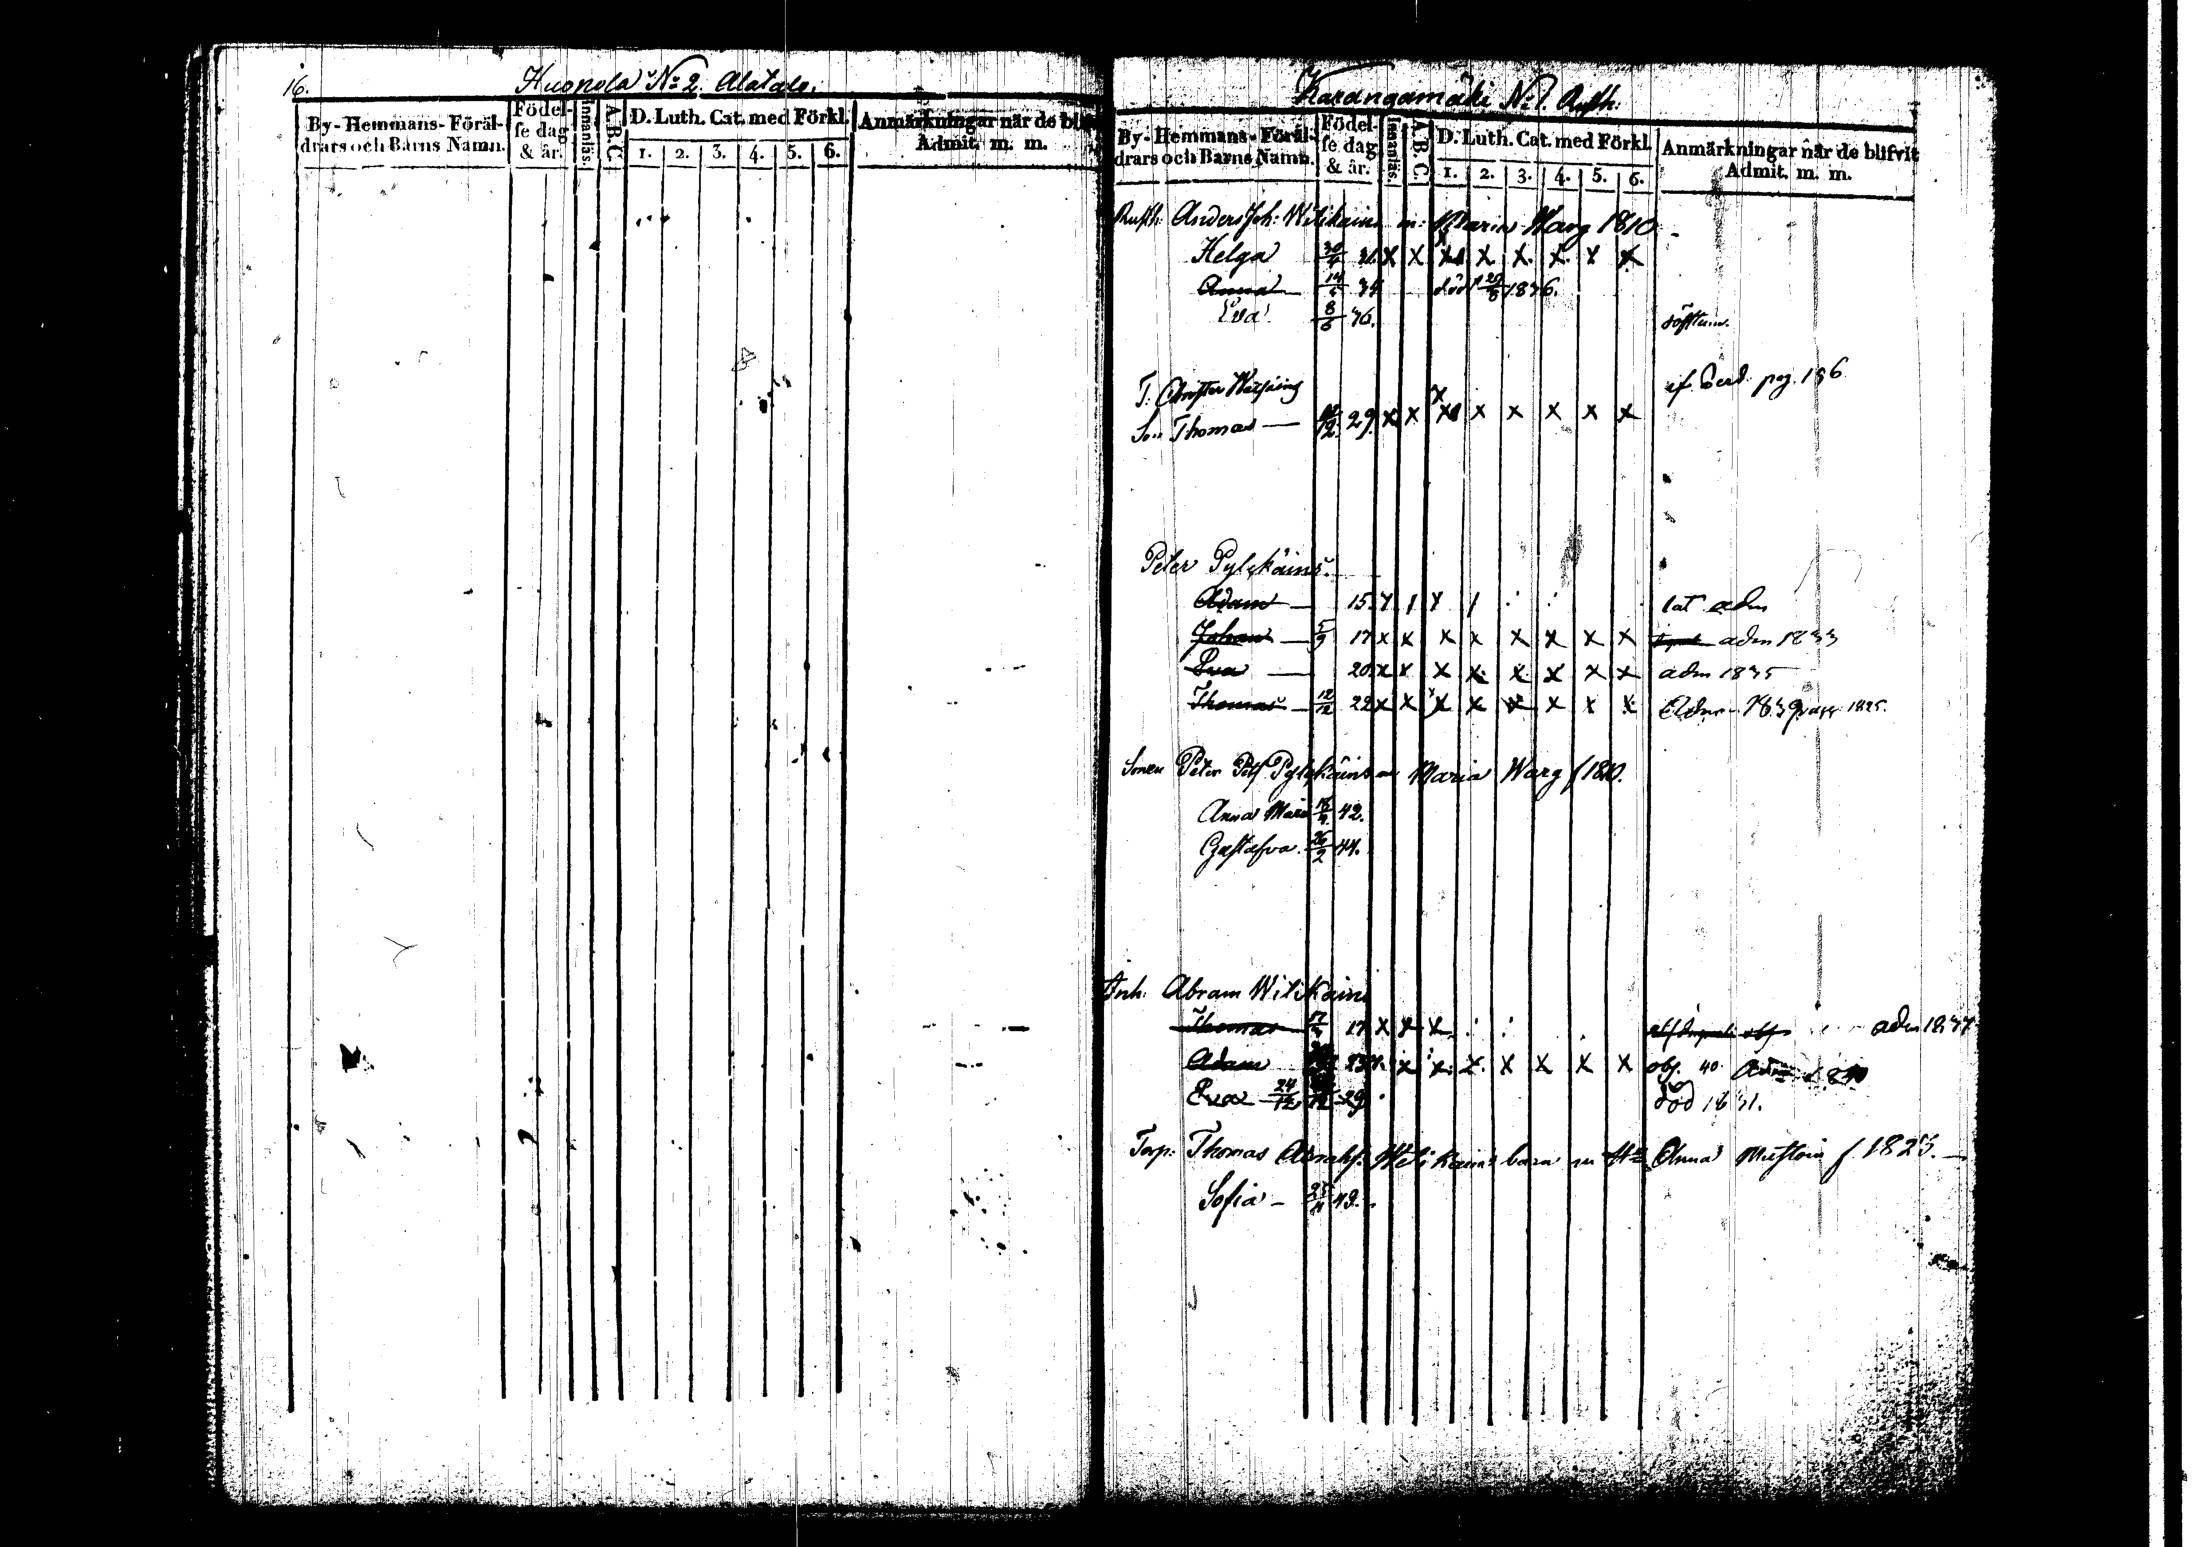 16.
Huopola No 2. Alatalo.
By- Hemmans- Föräl-
drars och Barns Namn.
Födel-
se dag
& år.
Innanläs:
A. B. C.
D. Luth. Cat. med Förkl.
1. 2. 3. 4. 5. 6.
Anmärkningar när de
Admit. m. m.
Karangamäki No 1. Rusth:
By- Hemmans- Föräl-
drars och Barns Namn.
Födel-
se dag
& år.
Innanläs.
A. B. C.
D. Luth. Cat. med Förkl.
1. 2. 3. 4. 5. 6.
Anmärkningar när de blifvit
Admit. m. m.
Rusth: Anders Joh: Wilikains m: Maria Warg 1810
Helga x x x x x x x x
Anna 14 död 1836.
Eva 8/6 36.
pag. 196
Son Thomas — 29. x x x x x x x x
Peter Pylykäinä.
Adam — 15. adm
Johan — 5/9 17 x x x x x x x x adm 1833
Eva — 20. x x x x x x x x adm 1835
Thomas — 12/12 22 x x x x x x x x Adm 1839
Sonen Peter Pylykäins Maria Warg f 1810.
Anna Maria 42.
Gustafva. 26/2 44.
Inh: Abram Wilikains
Thomas 17 x x x adm 1837
Adam 23 x x x x x x x obj. 40. Adm 1840
Eva 24/12 29 död 1831.
Torp: Thomas Abrahs. Wilikains barn m Anna f. 1823.
Sofia —